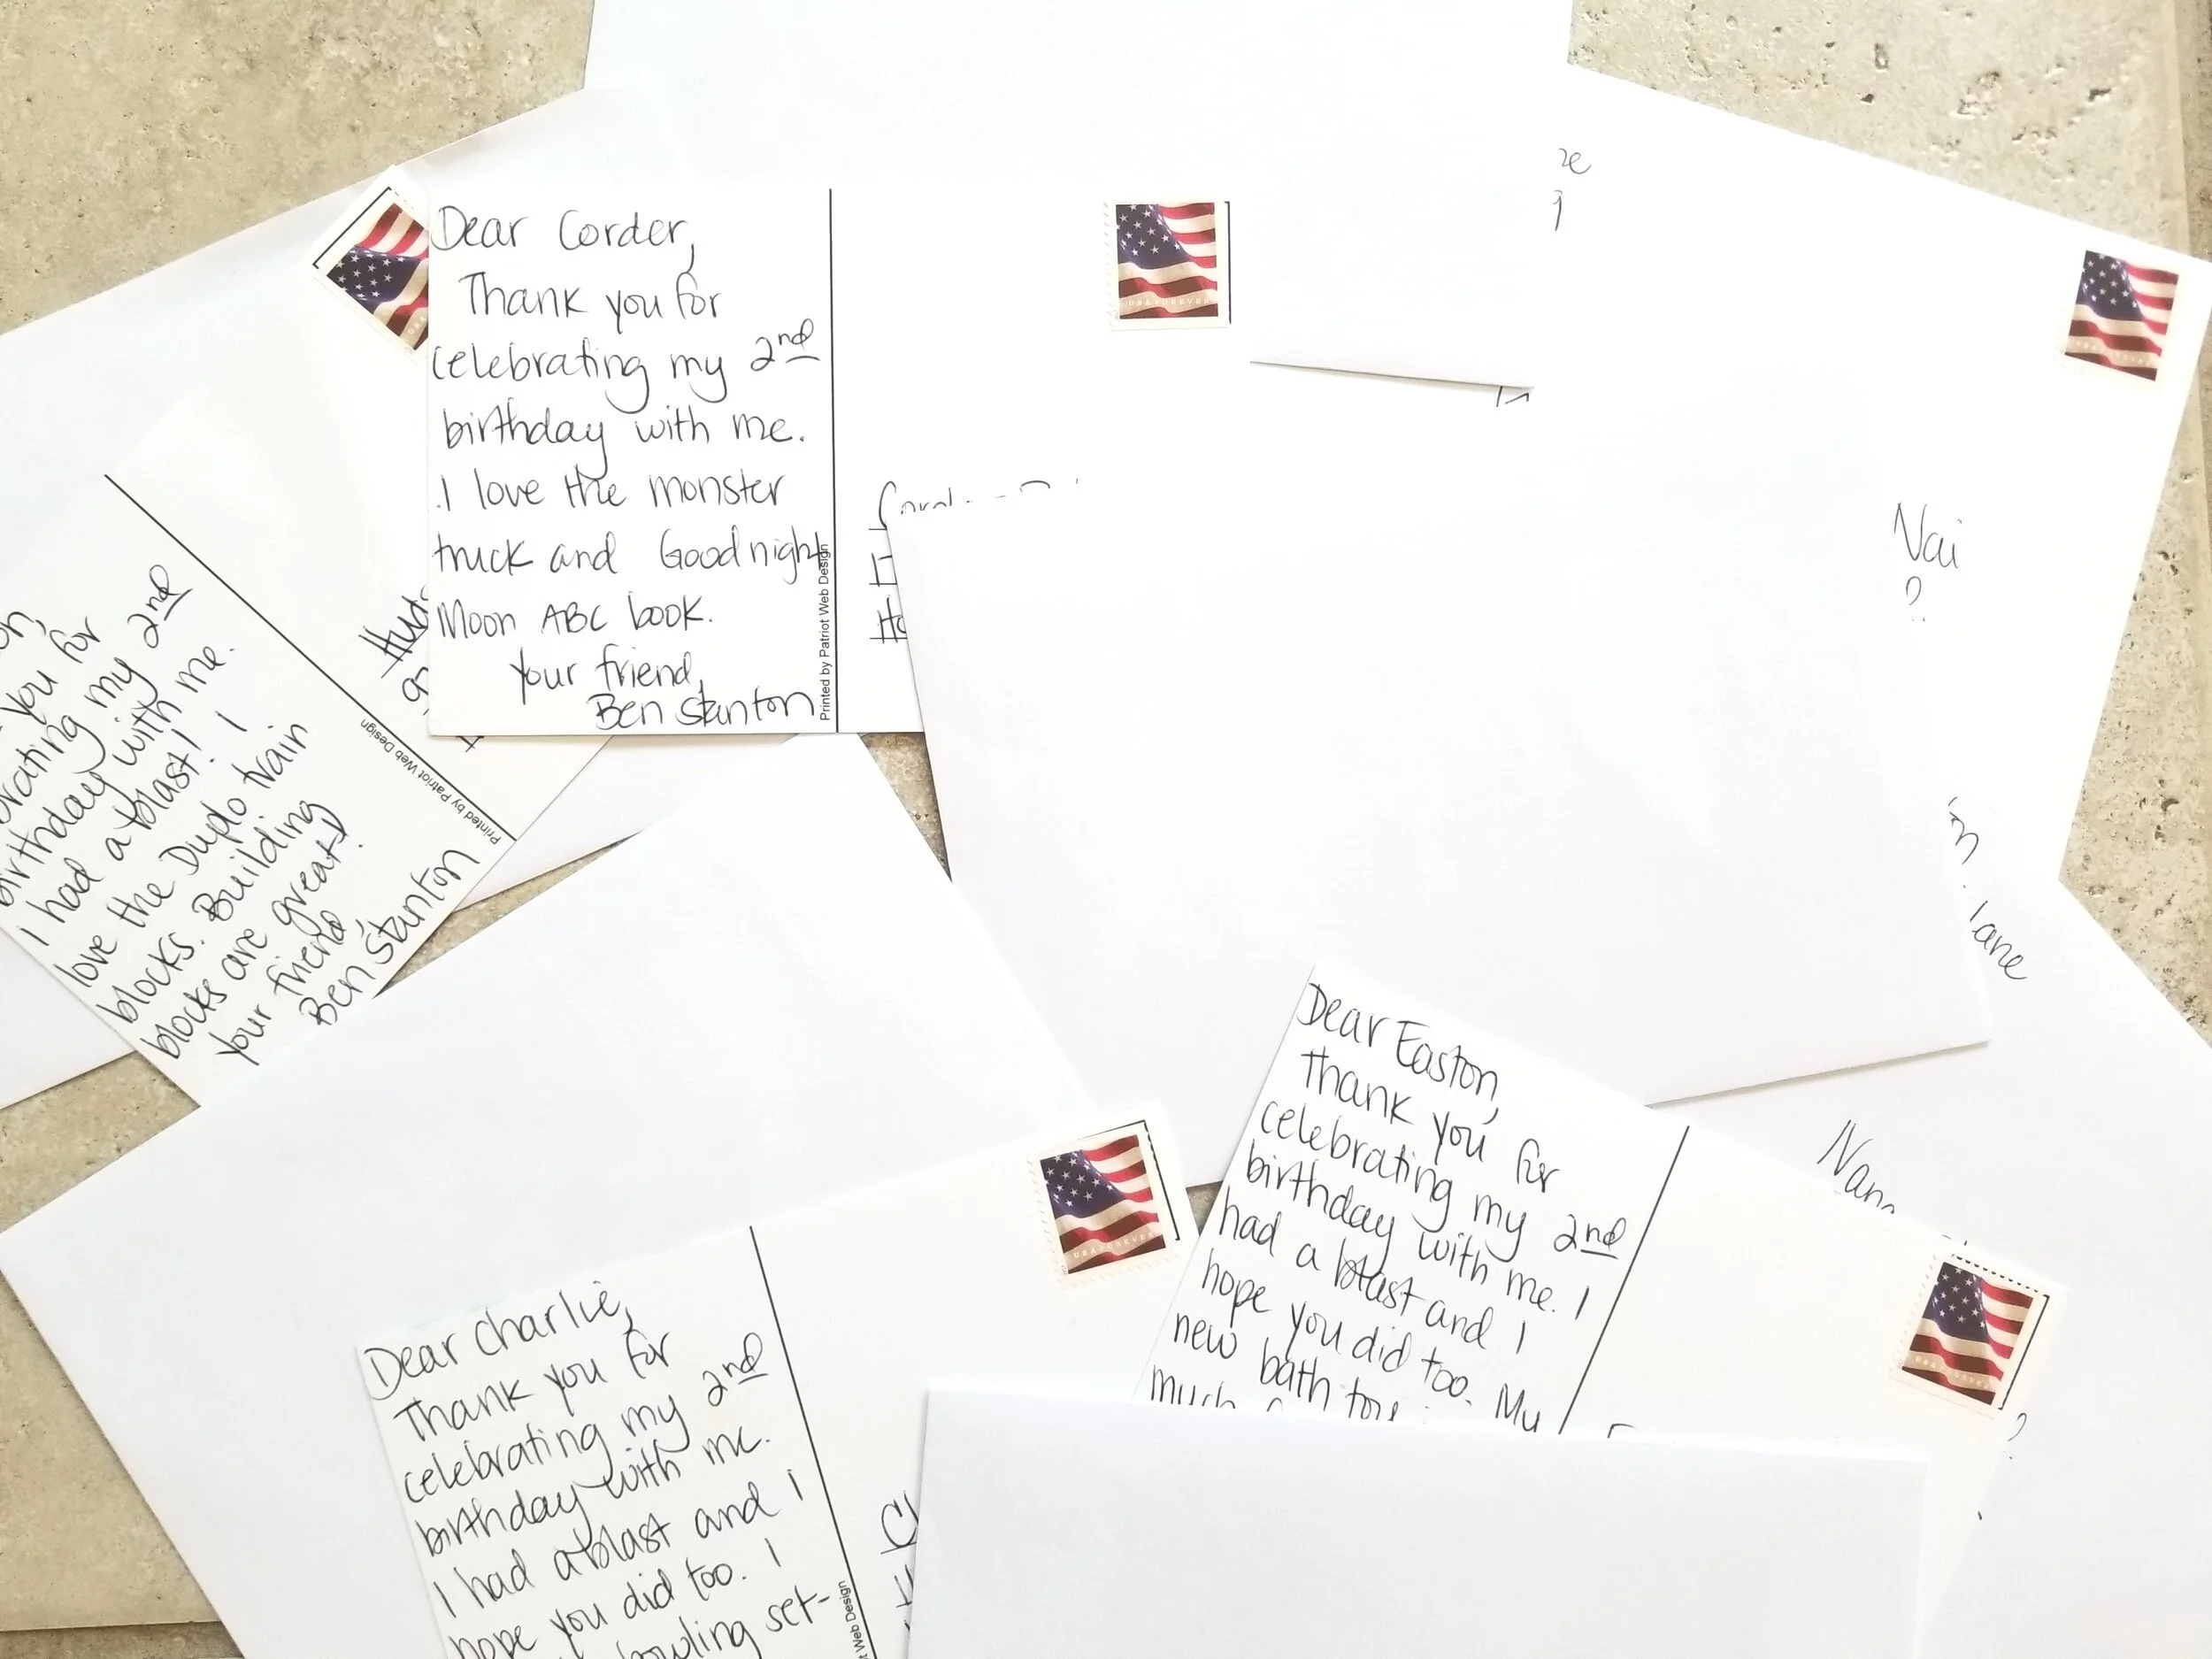 Dear Corder,
Thank you for
celebrating my 2nd
birthday with me.
I love the monster
truck and Goodnight
Moon ABC book.
Your friend,
Ben Stanton
Printed by Patriot Web Design
USA FOREVER
you for
my 2nd
birthday with me.
I had a blast! I
love the Duplo train
blocks. Building
blocks are great!
Your friend
Ben Stanton
Printed by Patriot Web Design
Dear Charlie,
Thank you for
celebrating my 2nd
birthday with me.
I had a blast and I
hope you did too. I
bowling set-
Web Design
USA FOREVER
Dear Easton,
Thank you for
celebrating my 2nd
birthday with me. I
had a blast and I
hope you did too. My
new bath
much
lane